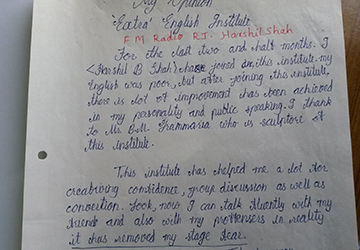 My Opinion
'Extra' English Institute
F.M Radio R.J. Harshil Shah
For the last two and half months. I
<Harshil B Shah> have joined in, this institute. my
English was poor, but after joining this institute,
there is lot of improvement has been achieved
in my personality and public speaking. I thank
to Mr. B.M. Grammaria who is sculptore of
this institute.
This institute has helped me a lot for
creabriving comsidence, group discussion as well as
convection. Look, now I can talk fluently with my
friends and also with my proffensers in reality
it has removed my stage fear.